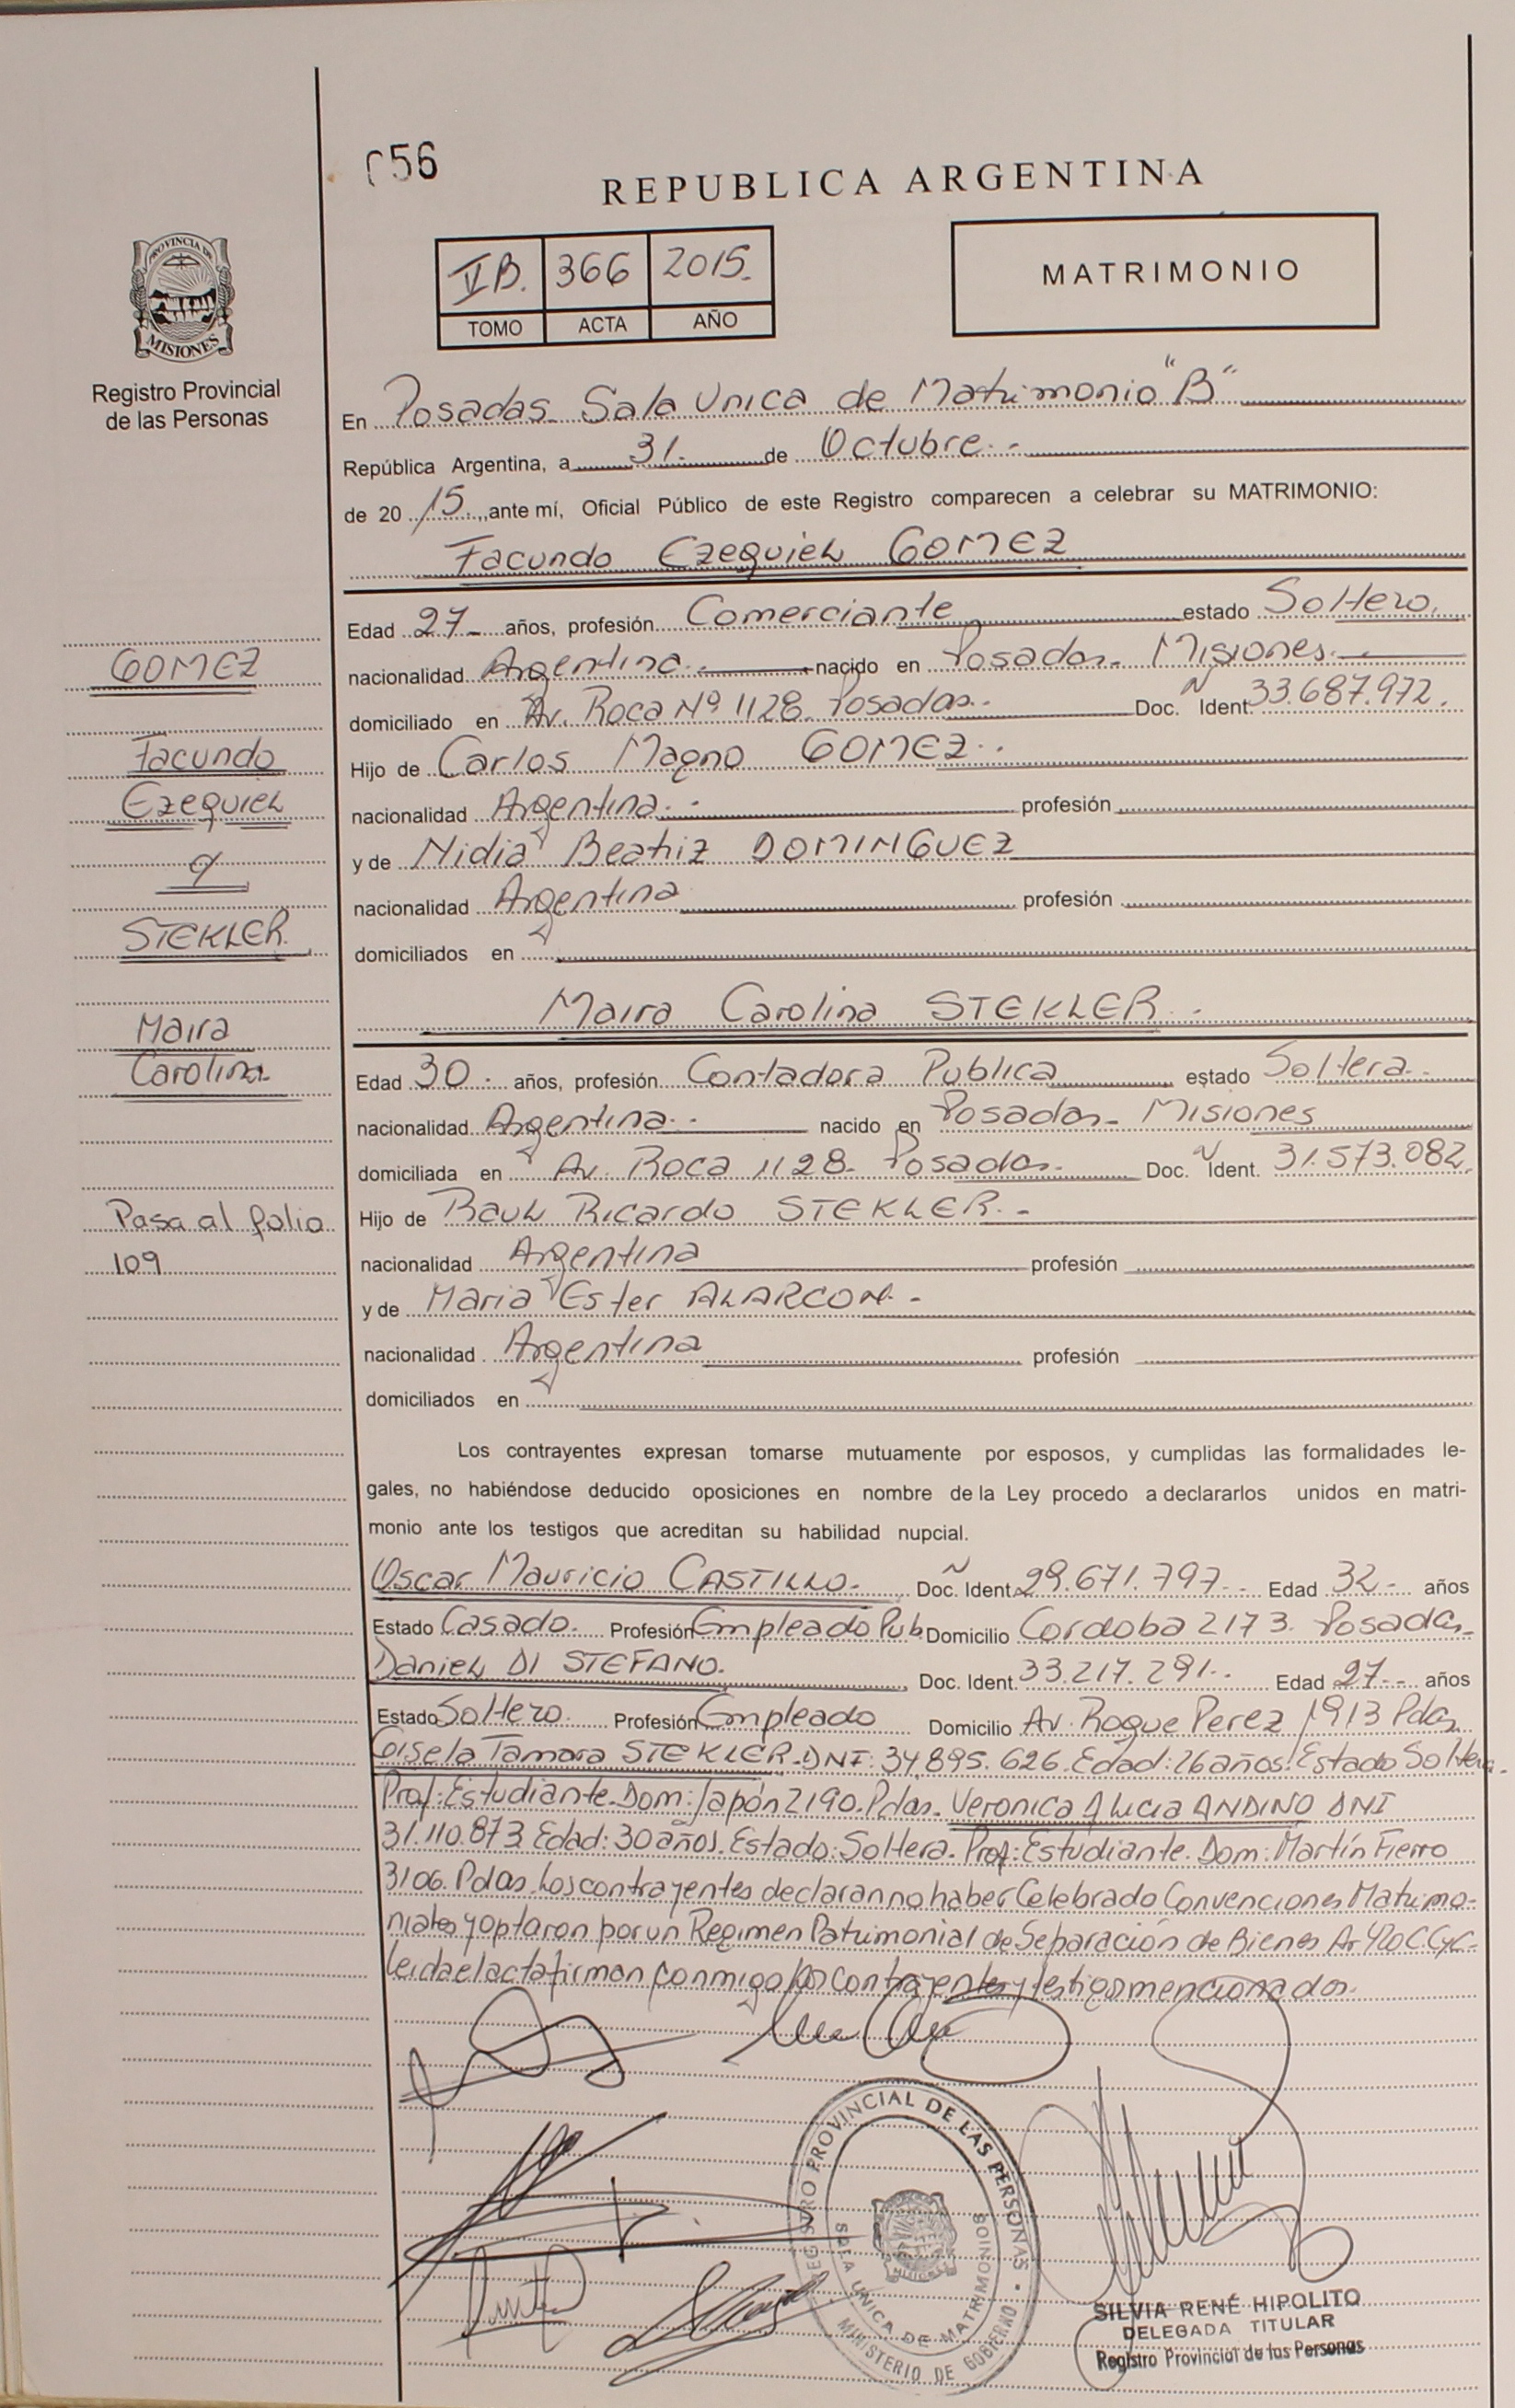 056
REPUBLICA ARGENTINA
PROVINCIA DE
MISIONES
Registro Provincial
de las Personas
II B. 366 2015.
TOMO ACTA AÑO
MATRIMONIO
En Posadas. Sala Unica de Matrimonio "B"
República Argentina, a 31. de Octubre.-
de 20 15. ante mí, Oficial Público de este Registro comparecen a celebrar su MATRIMONIO:
Facundo Ezequiel GOMEZ
Edad 27- años, profesión Comerciante estado Soltero.
nacionalidad Argentina.- nacido en Posadas- Misiones.-
domiciliado en Av. Roca Nº 1128. Posadas.. Doc. Ñ Ident. 33.687.972.
Hijo de Carlos Magno GOMEZ..
nacionalidad Argentina.- profesión
y de Nidia Beatriz DOMINGUEZ
nacionalidad Argentina profesión
domiciliados en
Maira Carolina STEKLER.-
Edad 30- años, profesión Contadora Publica estado Soltera.-
nacionalidad Argentina.- nacido en Posadas- Misiones
domiciliada en Av. Roca 1128- Posadas. Doc. Ident. 31.573.082.
Hijo de Raul Ricardo STEKLER.-
nacionalidad Argentina profesión
y de Maria Ester ALARCON.-
nacionalidad Argentina profesión
domiciliados en
GOMEZ
Facundo
Ezequiel
c/
STEKLER.
Maira
Carolina
Pasa al folio
109
Los contrayentes expresan tomarse mutuamente por esposos, y cumplidas las formalidades le-
gales, no habiéndose deducido oposiciones en nombre de la Ley procedo a declararlos unidos en matri-
monio ante los testigos que acreditan su habilidad nupcial.
Oscar Mauricio CASTILLO- Doc. Ident. 29.671.797.- Edad 32- años
Estado Casado. Profesión Empleado Pub. Domicilio Cordoba 2173. Posadas-
Daniel DI STEFANO. Doc. Ident. 33.217.291.. Edad 27.- años
Estado Soltero. Profesión Empleado Domicilio Av. Roque Perez 1913 Pdas
Gisela Tamara STEKLER-DNI: 34.895.626. Edad: 26 años. Estado Soltera.
Prof: Estudiante. Dom: Japón 2190. Pdas. Veronica Alucia ANDINO DNI
31.110.873 Edad: 30 años. Estado: Soltera. Prof: Estudiante. Dom: Martín Fierro
3106. Pdas. Los contrayentes declaran no haber Celebrado Convenciones Matrimo-
niales y optaron por un Regimen Patrimonial de Separación de Bienes Ar 420 C.CyC-
Leida el acta firman conmigo los contrayentes y testigos mencionados.
REGISTRO PROVINCIAL DE LAS PERSONAS
SALA UNICA DE MATRIMONIOS
MINISTERIO DE GOBIERNO
SILVIA RENÉ HIPOLITO
DELEGADA TITULAR
Registro Provincial de las Personas